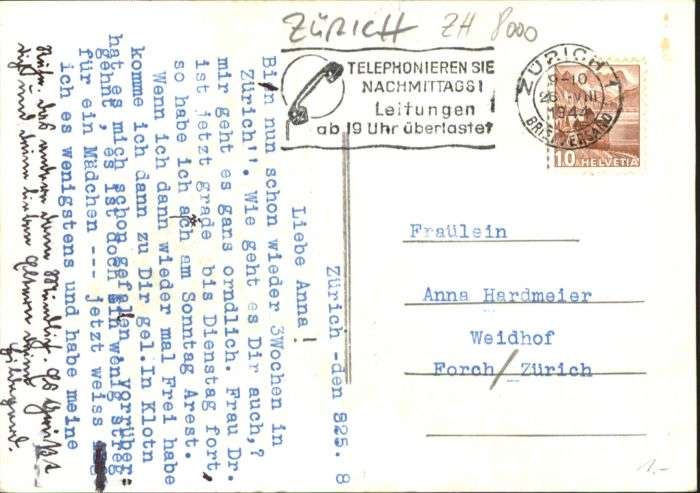 ZÜRICH ZH 8000
TELEPHONIEREN SIE
NACHMITTAGS!
Leitungen
ab 19 Uhr überlastet
ZÜRICH 1
9-10
26. VIII
1944
BRIEFVERSAND
10 HELVETIA
Fräulein
Anna Hardmeier
Weidhof
Forch/Zürich
1.-
Zürich -den 825. 8
Liebe Anna!
Bin nun schon wieder 3Wochen in
Zürich". Wie geht es Dir auch,?
mir geht es gans orndlich. Frau Dr.
ist jetzt grade bis Dienstag fort,
so habe ich ach am Sonntag Arest.
Wenn ich dann wieder mal Frei habe
komme ich dann zu Dir gel.In Klotn
hat es mich schon gefalen, vorrüber=
gehnt, es ist doch ein wenig streg
für ein Mädchen --- jetzt weiss
ich es wenigstens und habe meine
Ruhe. das andere dann Mündlich. Es Grüsst
Dich und deine lieben Hildegard.